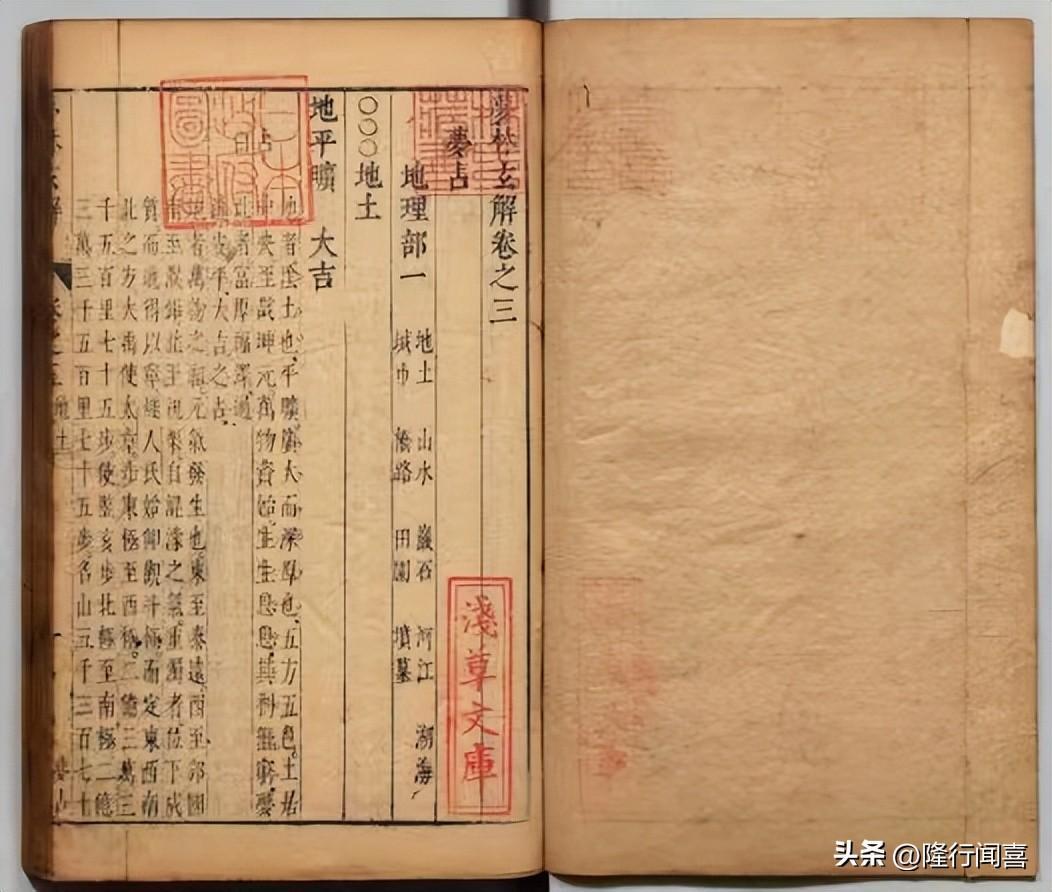 夢林玄解卷之三
夢占
地理部一
地土 山水 巖石 河江 湖海
城市 橋路 田園 墳墓
○○○地土
地平曠 大吉
占曰
地者陰土也平曠廣大而深厚也五方五色土居
中央至哉坤元萬物資始生生息息其利無窮夢
此者富厚福澤過
安平大吉之占
者萬物之祖元氣發生也東至泰遠西至邠國
南至濮鉛北至祝栗自混沌之氣重濁者位下成
質而地得以寧燧人氏始仰觀斗極而定東西南
北之方大禹使太章步東極至西極二億三萬三
千五百里七十五步使豎亥步北極至南極二億
三萬三千五百里七十五步名山五千三百七十
淺草文庫
日本政府圖書
头条 @隆行闻喜